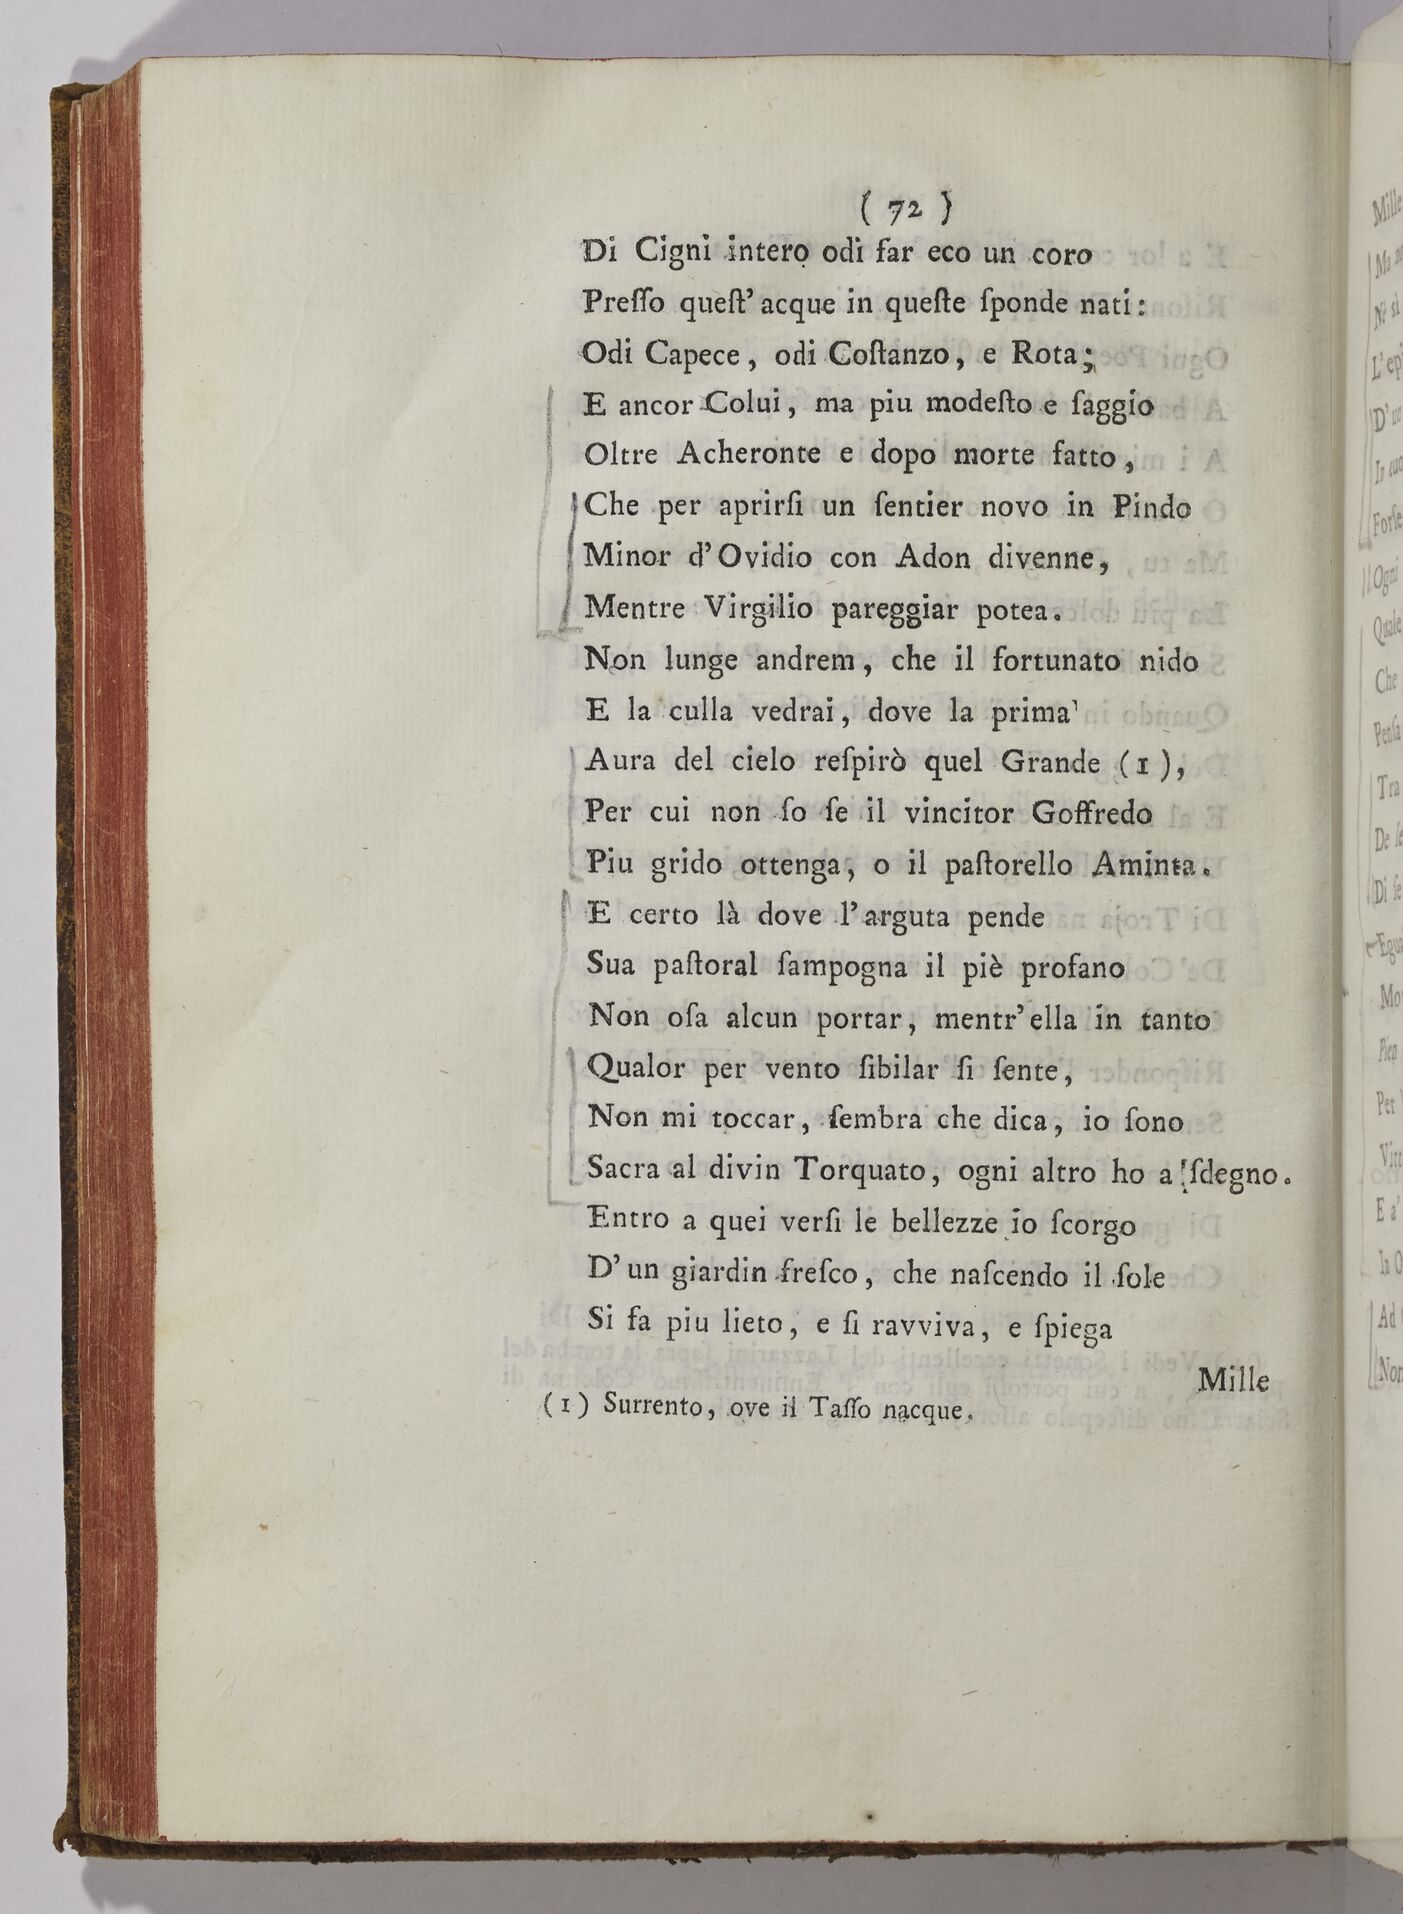 ( 72 )
Di Cigni intero odi far eco un coro
Preſſo queſt' acque in queſte ſponde nati:
Odi Capece, odi Coſtanzo, e Rota;
E ancor Colui, ma piu modeſto e ſaggio
Oltre Acheronte e dopo morte fatto,
Che per aprirſi un ſentier novo in Pindo
Minor d'Ovidio con Adon divenne,
Mentre Virgilio pareggiar potea.
Non lunge andrem, che il fortunato nido
E la culla vedrai, dove la prima
Aura del cielo reſpirò quel Grande (1),
Per cui non ſo ſe il vincitor Goffredo
Piu grido ottenga, o il paſtorello Aminta.
E certo là dove l'arguta pende
Sua paſtoral ſampogna il piè profano
Non oſa alcun portar, mentr'ella in tanto
Qualor per vento ſibilar ſi ſente,
Non mi toccar, ſembra che dica, io ſono
Sacra al divin Torquato, ogni altro ho a ſdegno.
Entro a quei verſi le bellezze io ſcorgo
D'un giardin freſco, che naſcendo il ſole
Si fa piu lieto, e ſi ravviva, e ſpiega
Mille
(1) Surrento, ove il Taſſo nacque.
Mille
L'ep
D'un
Forſe
Ogni
Quale
Che
Penſa
Tra
De ſe
Di ſe
Per
E a'
Ad
Non